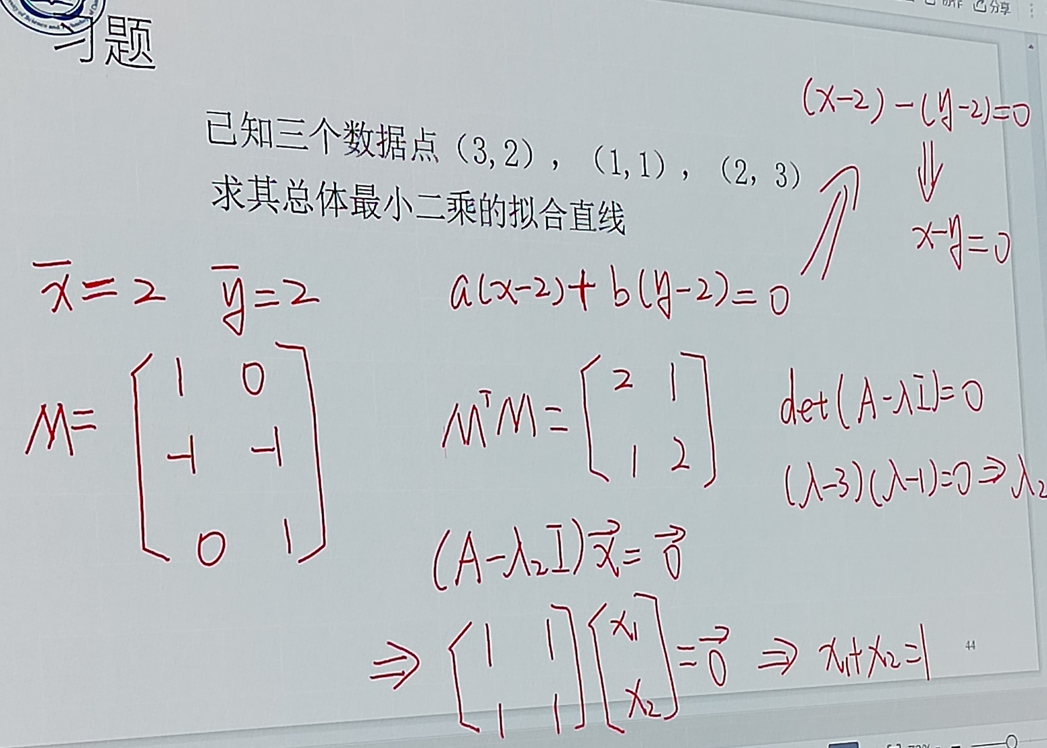 习题
已知三个数据点（3,2），（1,1），（2, 3）
求其总体最小二乘的拟合直线
(x-2)-(y-2)=0
⇓
x-y=0
x̅=2 y̅=2
a(x-2)+b(y-2)=0
M= [1 0
-1 -1
0 1]
MᵀM= [2 1
1 2]
det(A-λI)=0
(λ-3)(λ-1)=0⇒λ₂
(A-λ₂I)x⃗=0⃗
⇒ [1 1
1 1] [x₁
x₂] =0⃗ ⇒ x₁+x₂=1
44
分享